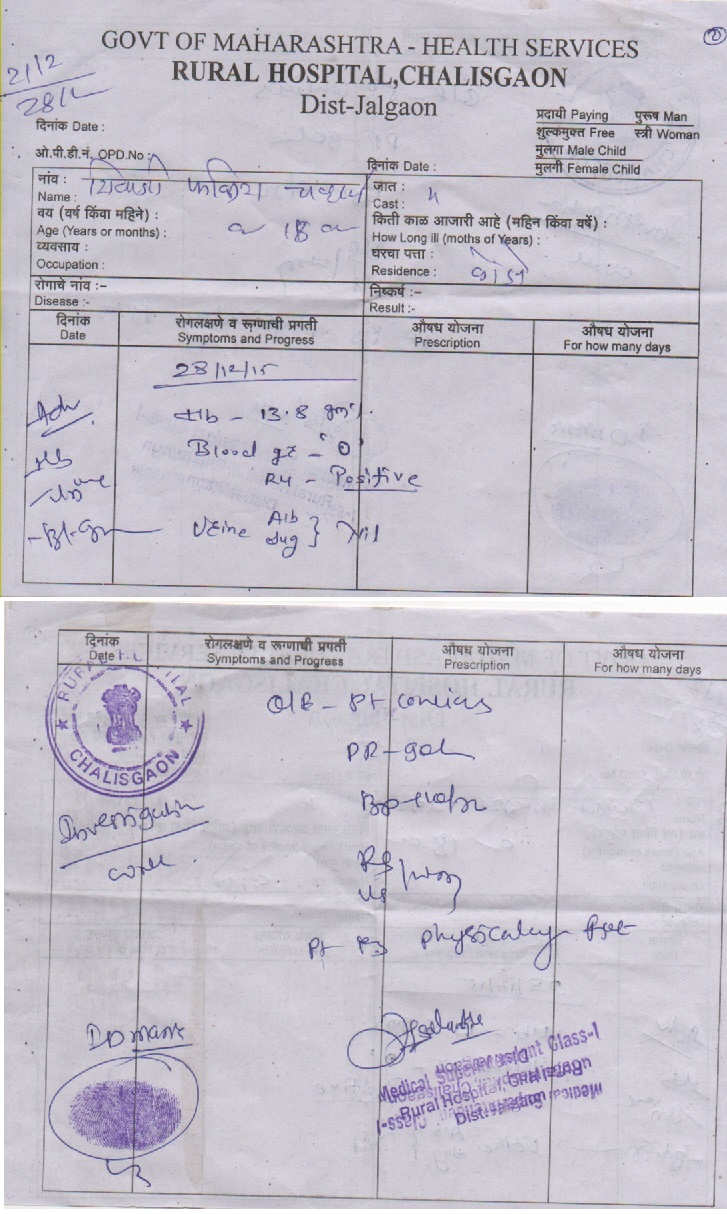 GOVT OF MAHARASHTRA - HEALTH SERVICES
RURAL HOSPITAL,CHALISGAON
Dist-Jalgaon
दिनांक Date :
प्रदायी Paying पुरूष Man
शुल्कमुक्त Free स्त्री Woman
मुलगा Male Child
मुलगी Female Child
ओ.पी.डी.नं. OPD.No :
दिनांक Date :
नांव :
Name :
जात :
Cast :
वय (वर्ष किंवा महिने) :
Age (Years or months) : 18
किती काळ आजारी आहे (महिन किंवा वर्षे) :
How Long ill (moths of Years) :
व्यवसाय :
Occupation :
घरचा पत्ता :
Residence :
रोगाचे नांव :-
Disease :-
निष्कर्ष :-
Result :-
दिनांक रोगलक्षणे व रूग्णाची प्रगती औषध योजना औषध योजना
Date Symptoms and Progress Prescription For how many days
28/12/15
Adv Hb - 13.8 gm%.
Hb Blood gr - 'O'
Urine RH - Positive
Bl. Gr Urine Alb Sug } Nil
दिनांक रोगलक्षणे व रूग्णाची प्रगती औषध योजना औषध योजना
Date Symptoms and Progress Prescription For how many days
CHALISGAON
O/E - Pt
PR -
Investigation
Pt is physically fit
ID mark
Medical Superintendent Class-I
Rural Hospital, CHALISGAON
Dist-Jalgaon